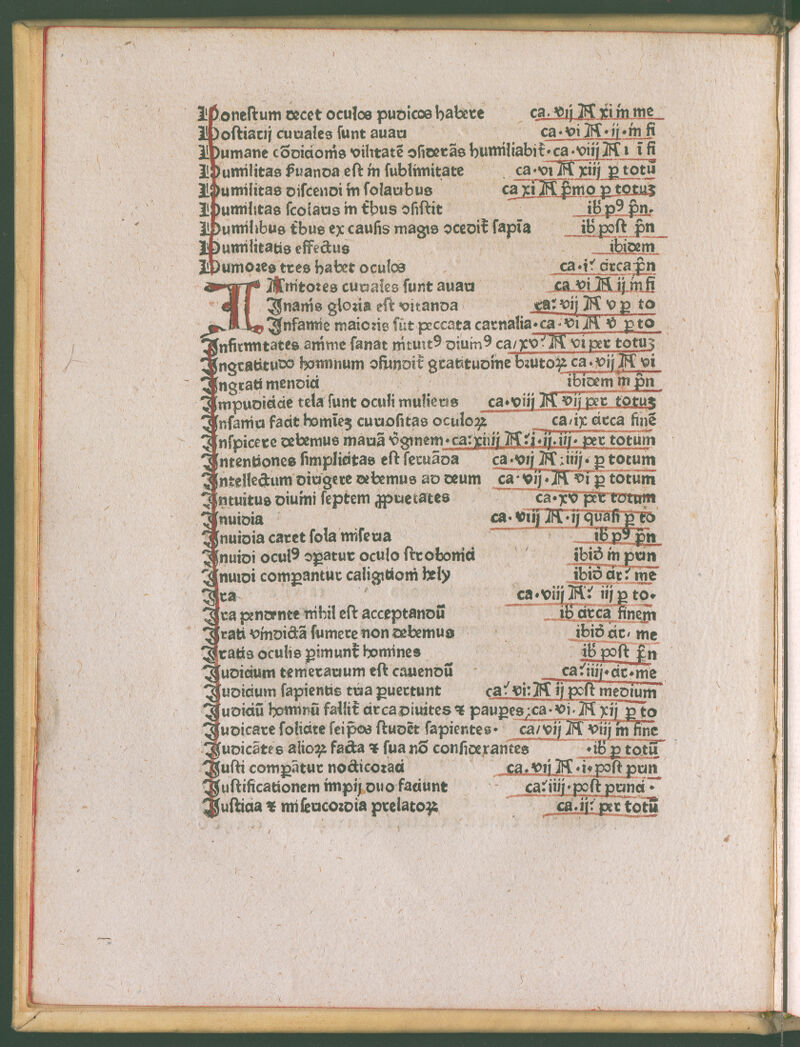 Honestum decet oculos pudicos habere ca. vij M xi in me
Hostiarij curiales sunt auari ca. vi M. ij. in fi
Humane cōdicionis vilitatē ꝯsiderās humiliabit̄. ca. viij M i ī fi
Humilitas ẜuanda est in sublimitate ca. vi M xiij ꝑ totū
Humilitas discendi in scolaribus ca xi M p̄mo ꝑ totuʒ
Humilitas scolaris in t̄bus ꝯsistit ib̄ pꝰ p̄n.
Humilibus t̄bus ex causis magis ꝯcedit̄ sapīa ib̄ post p̄n
Humilitatis effectus ibidem
Humores tres habet oculos ca. i. circa p̄n
Ianitores curiales sunt auari ca vi M ij in fi
Inanis gloria est vitanda ca. vij M v ꝑ to
Infamie maioris sūt peccata carnalia. ca. vi M v ꝑ to
Infirmitates anime sanat intuitꝰ diuinꝰ ca/ xv. M vi per totuʒ
Ingratitudo hominum ꝯfundit̄ gratitudine brutoꝝ ca. vij M vi
Ingrati mendici ibidem in p̄n
Impudicicie tela sunt oculi mulieris ca. viij M vij per totuʒ
Infamia facit homīes curiositas oculoꝝ ca/ ix circa finē
Inspicere debemus mariā v̄ginem. ca. xiiij M. i. ij. iij. per totum
Intentiones simplicitas est seruāda ca. vij M. iiij. ꝑ totum
Intellectum dirigere debemus ad deum ca. vij. M vi ꝑ totum
Intuitus diuini septem ꝓprietates ca. xv per totum
Inuidia ca. viij M. ij quasi ꝑ to
Inuidia caret sola miseria ib pꝰ p̄n
Inuidi oculꝰ ꝯꝑatur oculo strobonici ibid̄ in prin
Inuidi comꝑantur caligitioni hely ibid̄ cir. me
Ira ca. viij M. iij ꝑ to.
Ira pendente nihil est acceptandū ib̄ circa finem
Irati vindictā sumere non debemus ibid̄ cir. me
Iratis oculis ꝑimunt̄ homines ib̄ post p̄n
Iudicium temerarium est cauendū ca. iiij. cir. me
Iudicium sapientis tria ꝑuertunt ca. vi. M ij post medium
Iudiciū hominū fallit̄ circa diuites ⁊ pauꝑes; ca. vi. M xij ꝑ to
Iudicare solicite seip̄os studēt sapientes. ca/ vij M viij in fine
Iudicātes alioꝝ facta ⁊ sua nō considerantes . ib ꝑ totū
Iusti comꝑātur nocticoraci ca. vij M. i. post prin
Iustificationem impij duo faciunt ca. iiij. post princi.
Iusticia ⁊ misericordia prelatoꝝ ca. ij. per totū